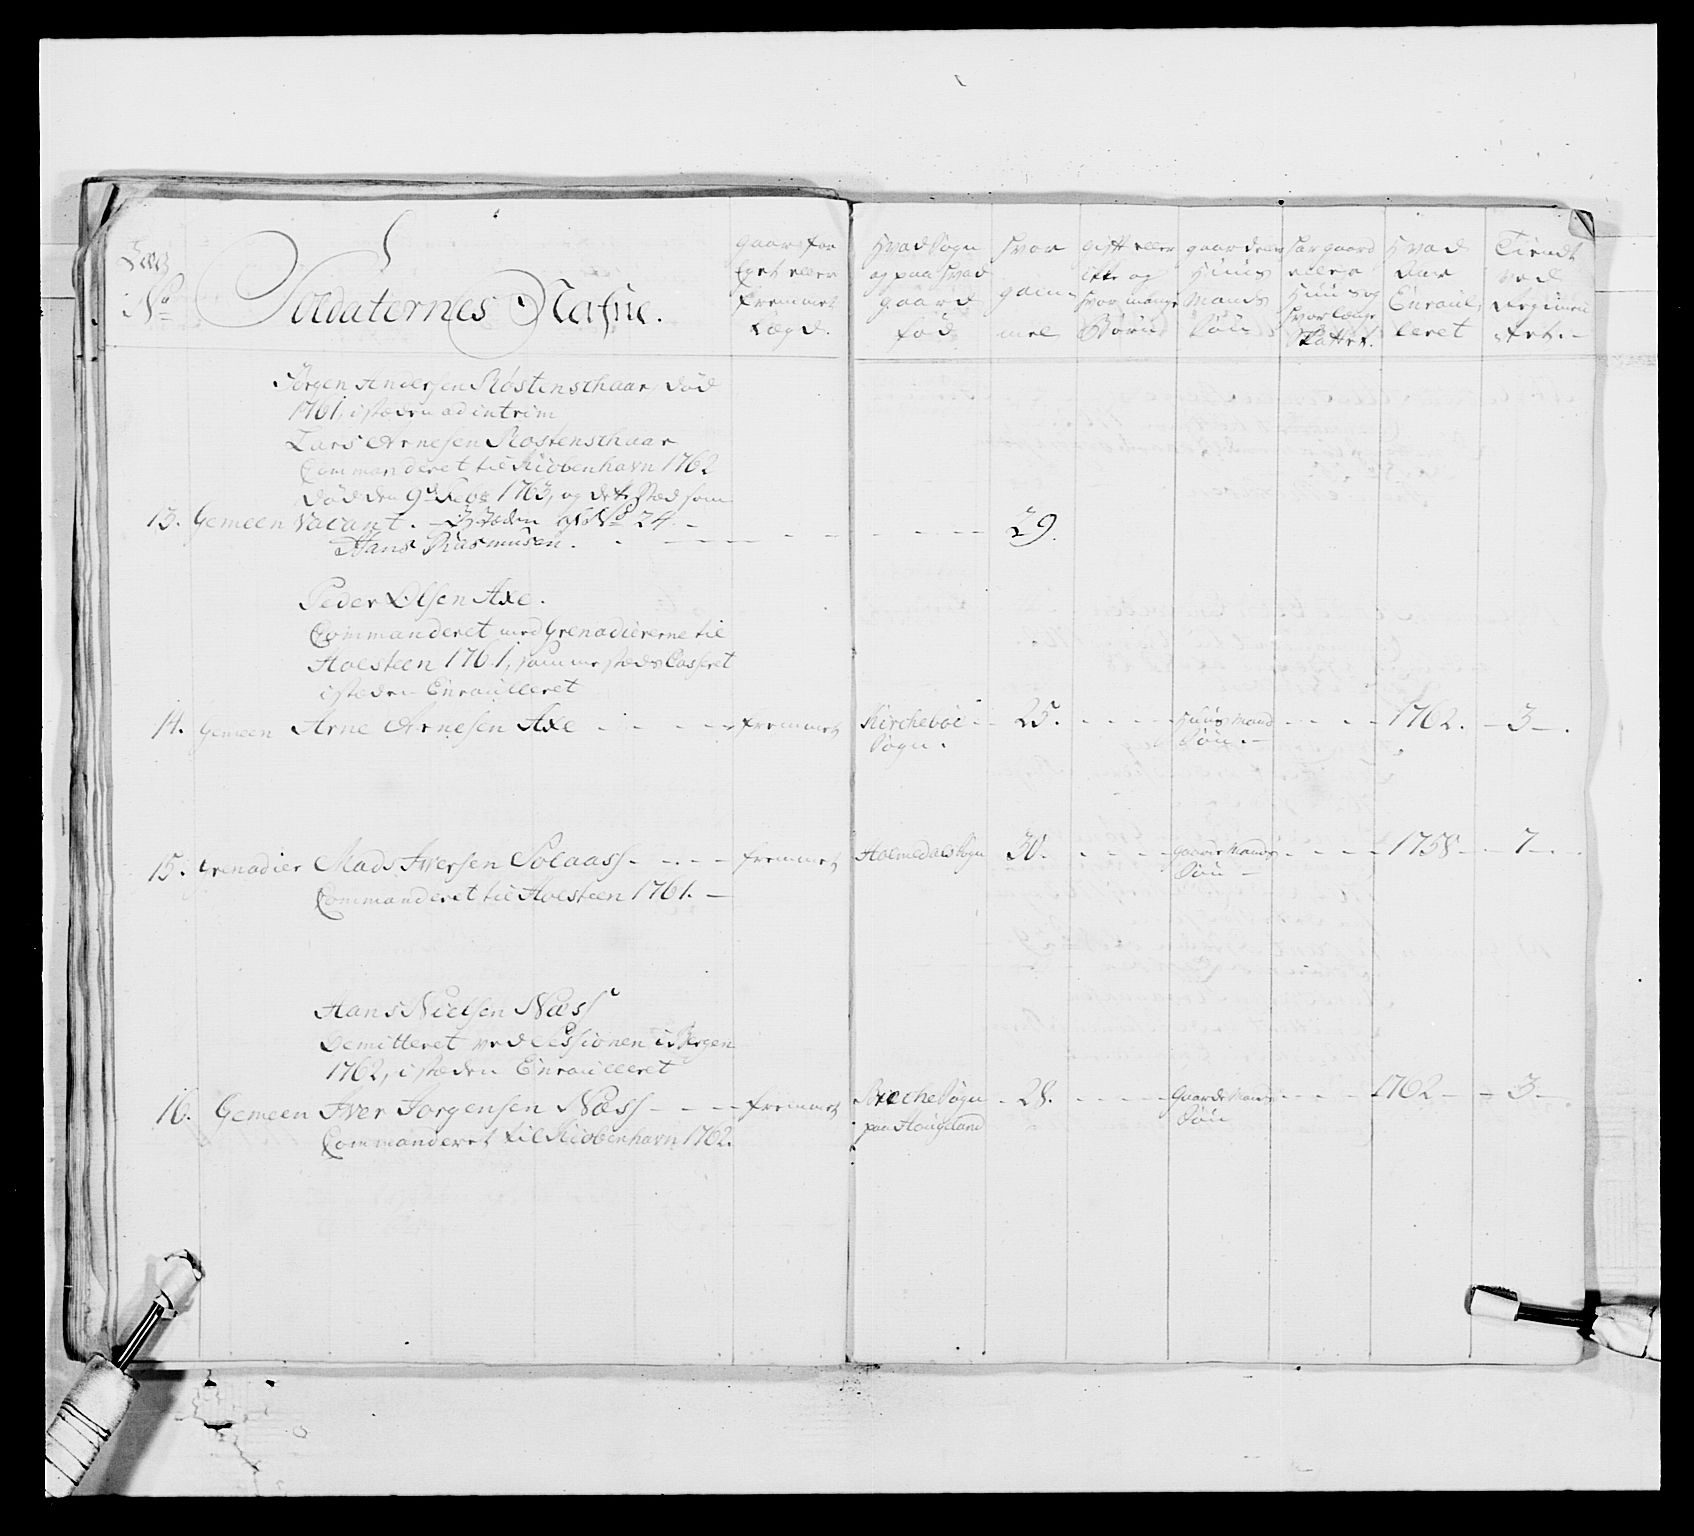 Lægs
No
Soldaternes Nafne.
gaar for
Eget eller
fremmet
Lægd.
Hvad Sogn
og paa hvad
gaard
fød
Hvor
gam-
mel
gift eller
ikke og
hvor mange
Børn
gaard eller
Huus
Mands
Søn
har gaard
eller
Huus og
hvor længe
Skattet.
Hvad
Aar
Enroul-
leret
Tient
ved
Regimen
-tet.
Jørgen Andersen Røstenschaar, død
1761, isteden ad intrim
Lars Arnesen Røstenschaar
Commanderet til Kiøbenhavn 1762
død den 9d Febr 1763, og det Sted som
13. Gemeen Vacant. - Isteden No 24. -
Hans Rasmusen. 29.
Peder Olsen Axe.
Commanderet med Grenadiererne til
Holsteen 1761, sammesteds Casseret
isteden Enroulleret
14. Gemeen Arne Arnesen Axe - fremmet Kirchebøe - 25. - Huusmand - 1762. - 3 -.
Sogn. Søn. -
15. Grenadier Mads Iversen Solaass - fremmet Holmedals Sogn 30. - Gaardemands - 1758 - 7 -
Commanderet til Holsteen 1761. - Søn -
Hans Nielsen Næss
Demitteret ved Sessionen i Bergen
1762, isteden Enroulleret
16. Gemeen Iver Jørgensen Næss - fremmet Breche Sogn - 28. - Gaardemands - 1762 - 3 -
Commanderet til Kiøbenhavn 1762. paa Hougland Søn